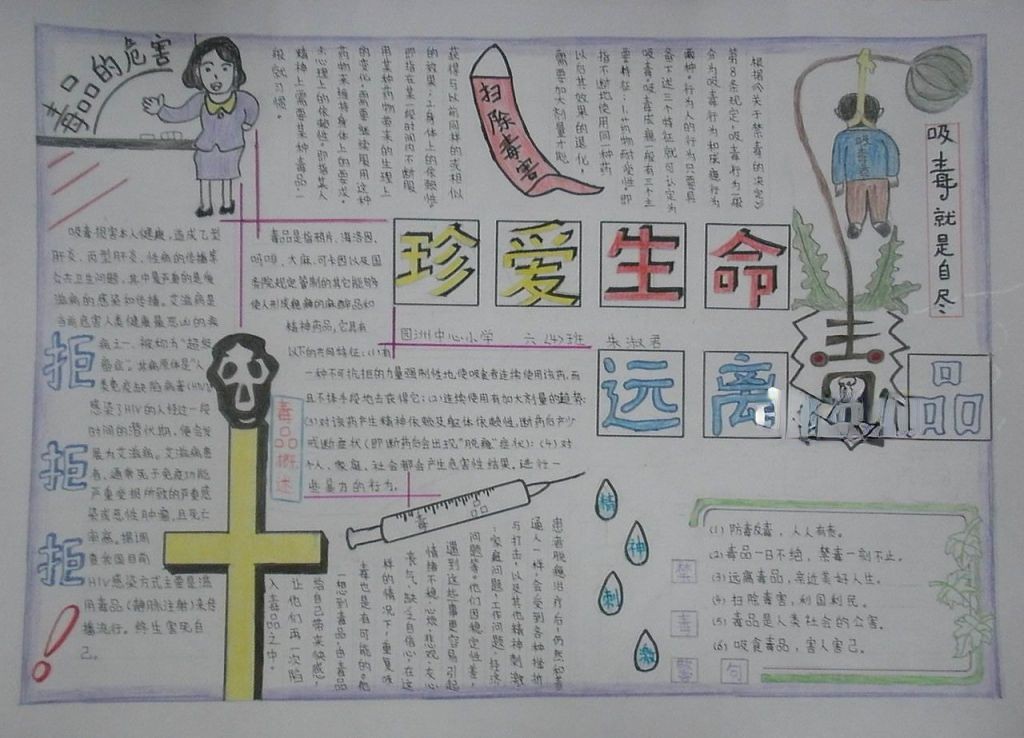 毒品的危害
根据《关于禁毒的决定》
第8条规定，吸毒行为一般
分为吸毒行为和成瘾行为
两种。行为人的行为只要具
备下述三个特征就可认定为
吸毒。吸毒成瘾一般有三个主
要特征：1.药物耐受性。即
指不断地使用同一种药
以后其效果的退化，
需要加大剂量才能
获得与以前同样的或相似
的效果。2.身体上的依赖性。
即指在某一段时间内不断服
用某种药物带来的生理上
的变化，需要继续服用这种
药物来维持身体上的要求。
3.心理上的依赖性。即指某人
精神上需要某种毒品，一
般就习惯。
扫除毒害
吸毒就是自尽
吸毒
珍爱生命
园洲中心小学 六(4)班 朱淑君
远离毒品
吸毒很害本人健康，造成乙型
肝炎、丙型肝炎、性病的传播等
公共卫生问题，其中最严重的是艾
滋病的感染和传播。艾滋病是
当前危害人类健康最凶的疾
病之一，被称为“超级
癌症”。其病原体是“人
类免疫缺陷病毒(HIV)
感染了HIV的人经过一段
时间的潜伏期，便会发
展为艾滋病。艾滋病患
者，通常死于免疫功能
严重受损所致的严重感
染或恶性肿瘤，且死亡
率高。据调
查我国目前
HIV感染方式主要是混
用毒品(静脉注射)来传
播流行。终生害死自
己。
拒
拒
拒
！
毒品是指鸦片、海洛因、
吗啡、大麻、可卡因以及国
务院规定管制的其它能够
使人形成瘾癖的麻醉品和
精神药品，它具有
以下的共同特征：(1)有
一种不可抗拒的力量强制性地使吸食者连续使用该药，而
且不择手段地去获得它；(2)连续使用有加大剂量的趋势；
(3)对该药产生精神依赖及躯体依赖性，断药后产生
戒断症状(即断药后会出现“脱瘾”症状)；(4)对
个人、家庭、社会都会产生危害性结果，进行一
些暴力的行为。
毒品概述
毒品
患者脱瘾治疗后仍然和普
通人一样会受到各种挫折
与打击，以及其他精神刺激
，家庭问题，工作问题，经济
问题等。他们因稳定性差，
遇到这些事更容易引起
情绪不稳、心烦、悲观、灰心
丧气、缺乏自信心。在这
样的情况下，重复吸
毒也是有可能的。他
一想到毒品，由毒品
给自己带来快感，
让他们再一次陷
入毒品之中。
精
神
刺
激
禁毒警句
(1) 防毒反毒，人人有责。
(2) 毒品一日不绝，禁毒一刻不止。
(3) 远离毒品，亲近美好人生。
(4) 扫除毒害，利国利民。
(5) 毒品是人类社会的公害。
(6) 吸食毒品，害人害己。